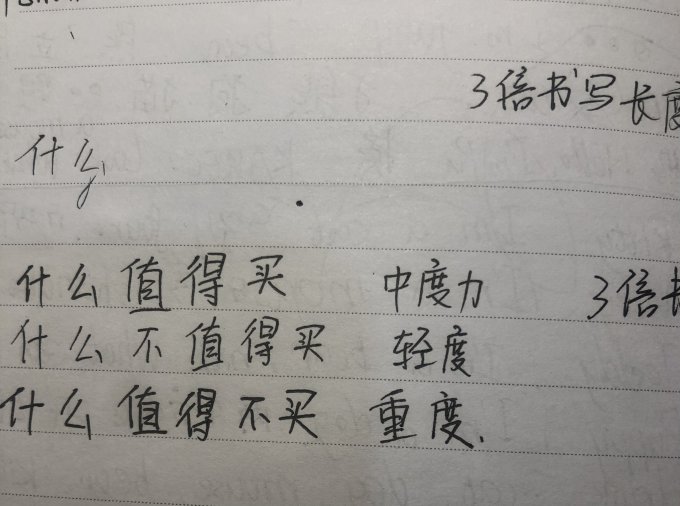 3倍书写长度
什么
什么值得买 中度力 3倍
什么不值得买 轻度
什么值得不买 重度.